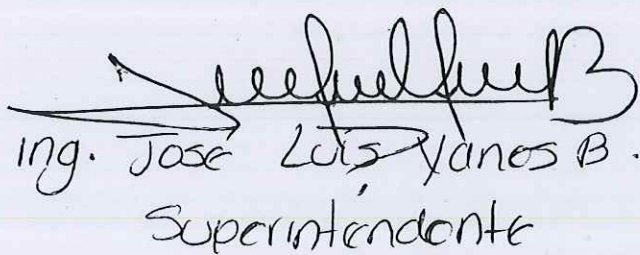 Ing. Jose Luis Yanes B.
Superintendente